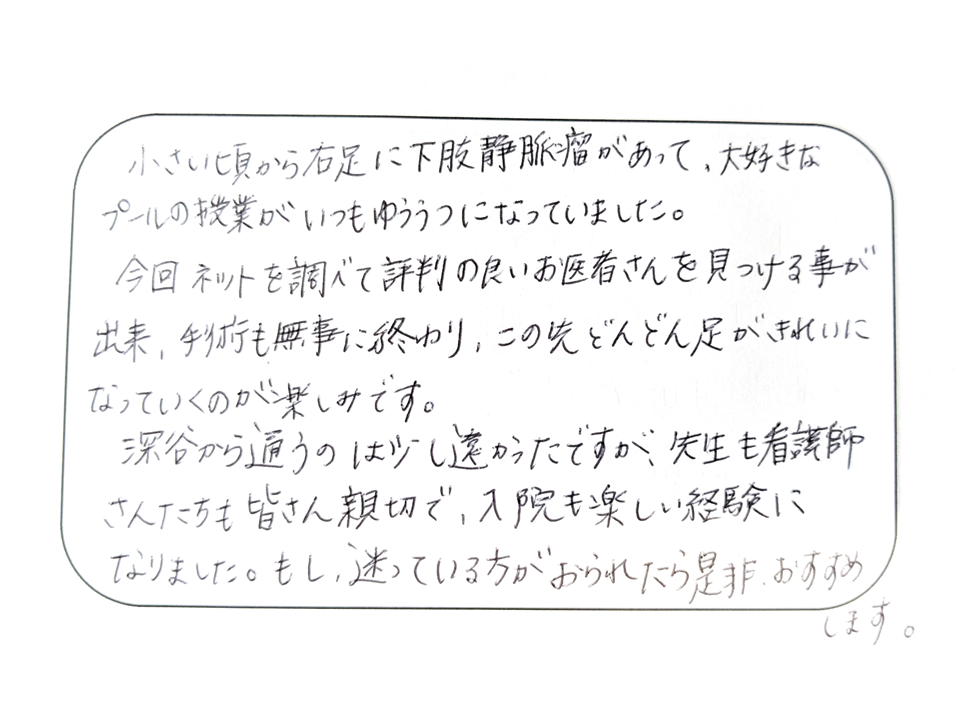 小さい頃から右足に下肢静脈瘤があって、大好きな
プールの授業がいつもゆううつになっていました。
今回ネットを調べて評判の良いお医者さんを見つける事が
出来、手術も無事に終わり、この先どんどん足がきれいに
なっていくのが楽しみです。
深谷から通うのは少し遠かったですが、先生も看護師
さんたちも皆さん親切で、入院も楽しい経験に
なりました。もし、迷っている方がおられたら是非、おすすめ
します。